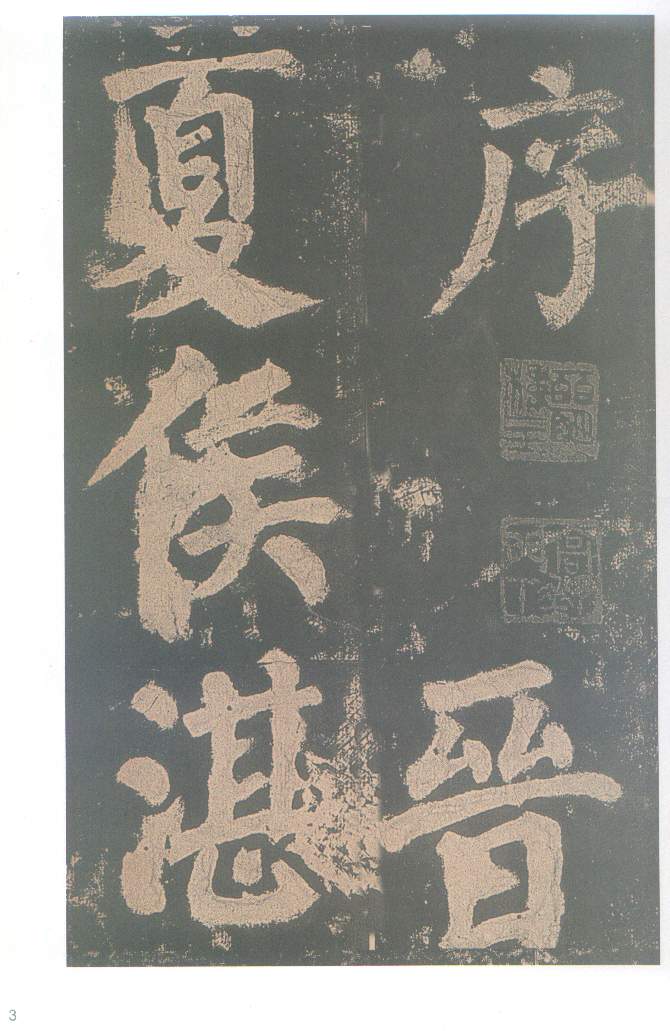 序
晉
夏侯湛
3